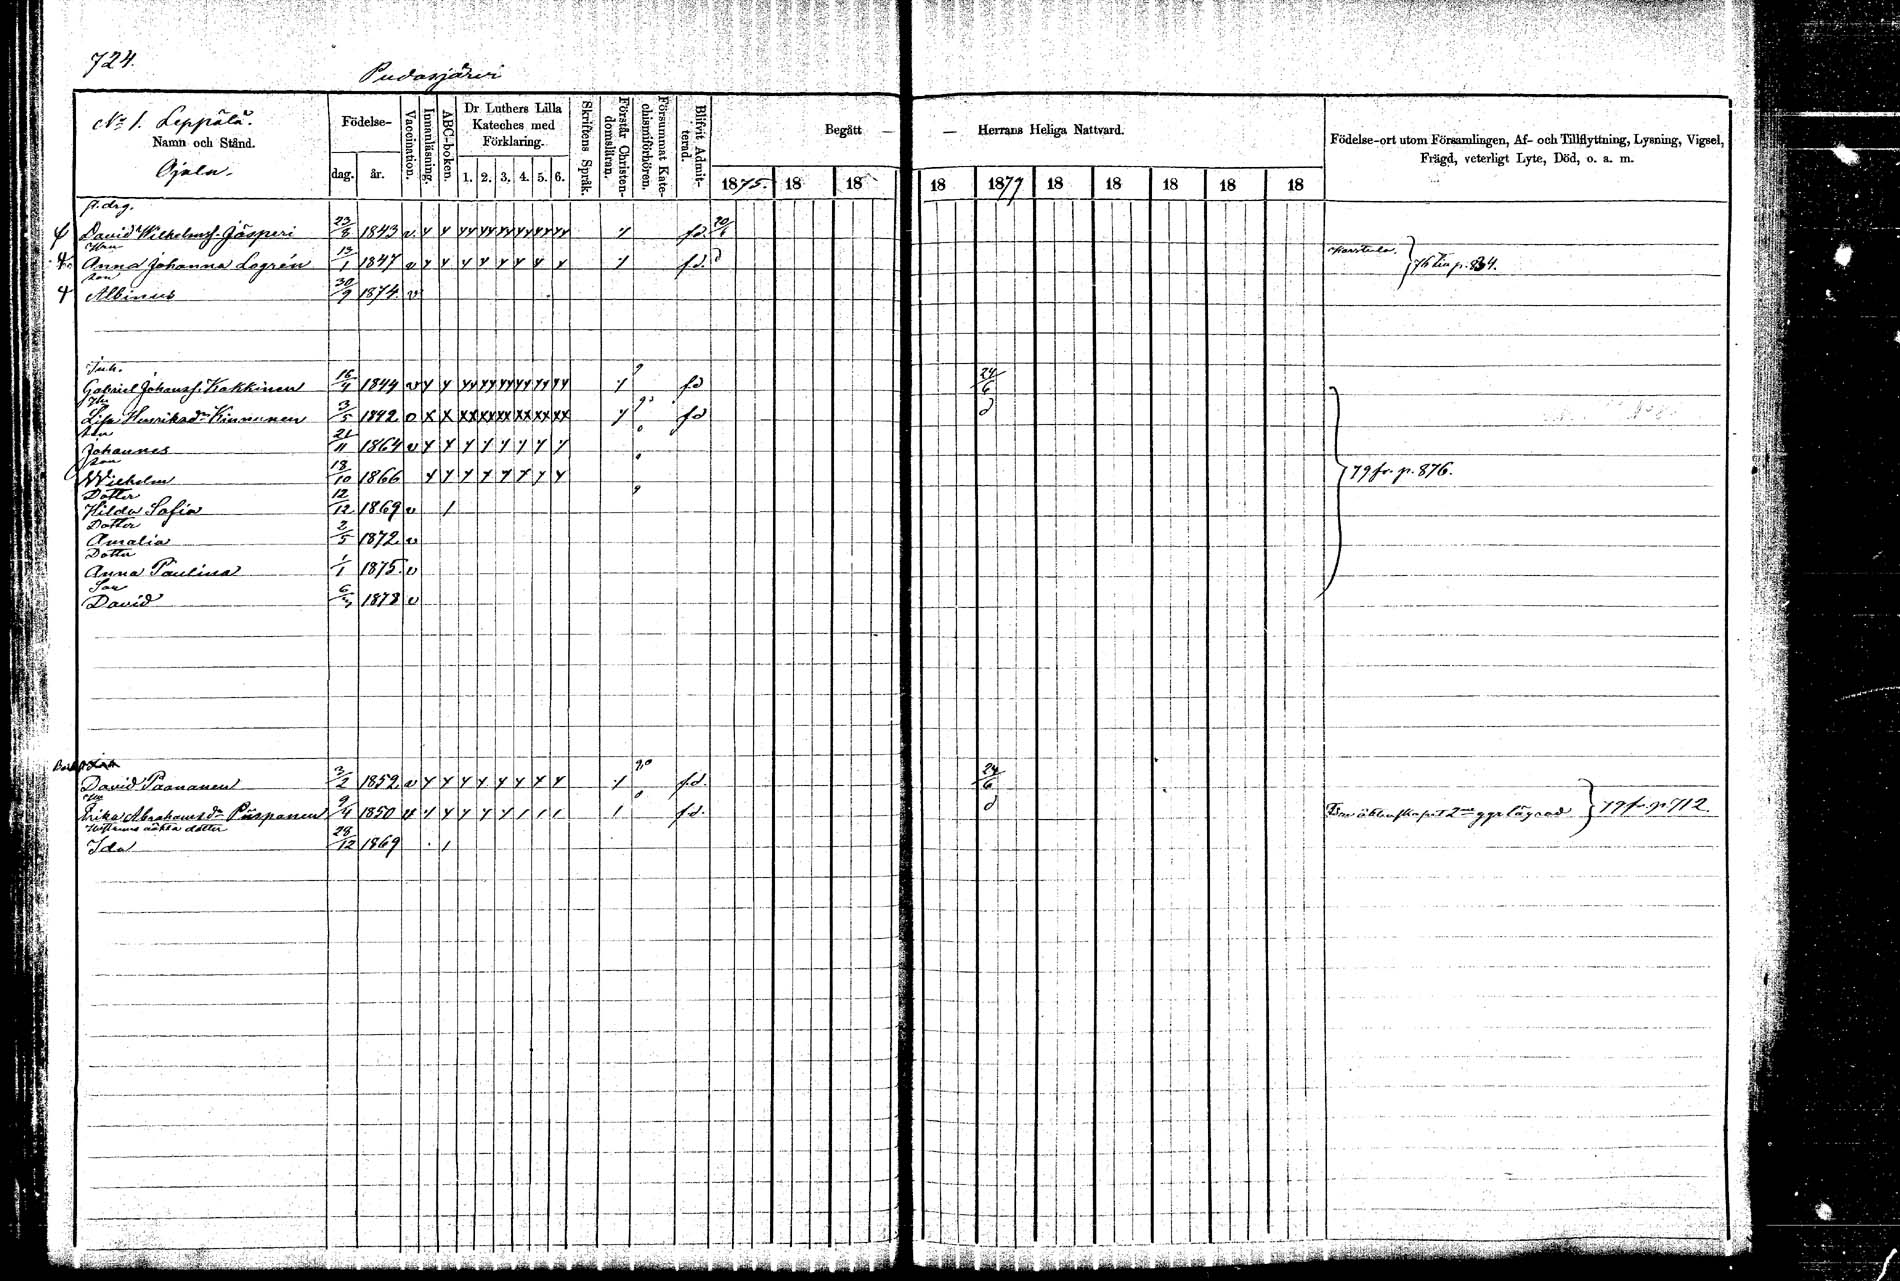 724.
Pudasjärvi
No 1. Leppälä.
Namn och Stånd.
Ojala.
Födelse-
dag. år.
Vaccination.
Innanläsning.
ABC-boken.
Dr Luthers Lilla
Kateches med
Förklaring.
1. 2. 3. 4. 5. 6.
Skriftens Språk.
Förstår Christen-
domsläran.
Försummat Kate-
chismiförhören.
Blifvit Admit-
terad.
Begått —
— Herrans Heliga Nattvard.
1875. 18 18 18 1879 18 18 18 18 18
Födelse-ort utom Församlingen, Af- och Tillflyttning, Lysning, Vigsel,
Frägd, veterligt Lyte, Död, o. a. m.
David Wilhelmsf. Jäsperi 23/8 1843 v f.d. 20/6
Anna Johanna Logrén 13/1 1847 v f.d. Karstula.
76 till p. 834.
son
Albinus 30/9 1874 v
Inh.
Gabriel Johansf. Kakkinen 16/4 1844 v f.d 24/6
Lisa Henriksdr Kinnunen 3/5 1842 f.d
son
Johannes 21/11 1864 v
son
Wilhelm 18/10 1866
79 fr. p. 876.
Dotter
Hilda Sofia 12/12 1869 v
Dotter
Amalia 2/5 1872 v
Dotter
Anna Paulina 1/1 1875. v
Son
David 1878 v
David Paananen 3/2 1852 v f.d. 24/6
Erika Abrahamsdr Piispanen 9/4 1850 f.d.
79 fr. p. 712.
Hustruns oäkta dotter
Ida 28/12 1869